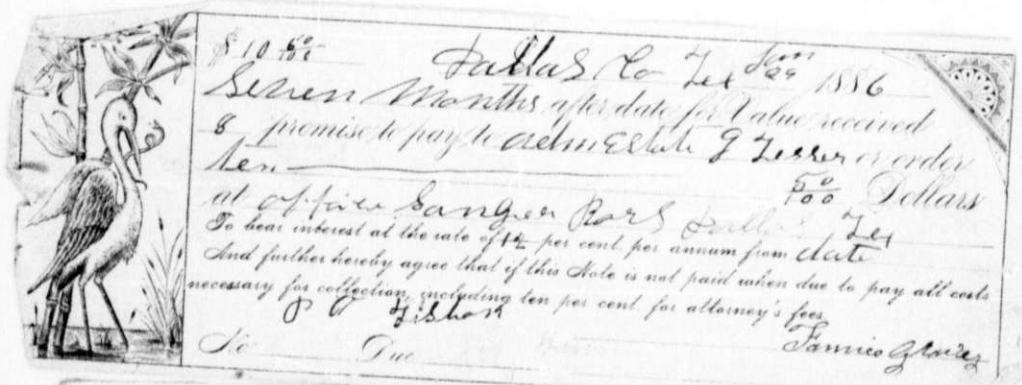 $10 50/100 Dallas Co Tex Jan 29 1886
Seven Months after date for Value received
promise to pay to adm Estate J Lesser or order
ten 50/100 Dollars
at office Sanger Bors Dallas Tex
To bear interest at the rate of 12 per cent. per annum from date
And further hereby agree that if this Note is not paid when due to pay all costs
necessary for collection, including ten per cent. for attorney's fees.
No Due